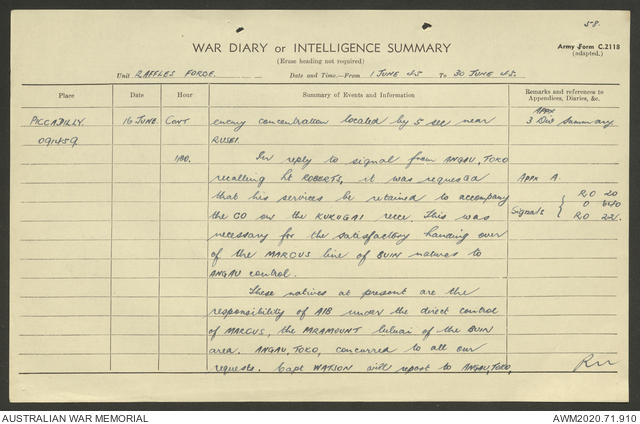 58.
WAR DIARY or INTELLIGENCE SUMMARY
Army Form C.2118
(adapted.)
(Erase heading not required)
Unit RAFFLES FORCE Date and Time.—From 1 JUNE 45 To 30 JUNE 45.
Place Date Hour Summary of Events and Information Remarks and references to
Appendices, Diaries, &c.
PICCADILLY 16 JUNE. CONT enemy concentration located by 5 sec near APPX
3 Div Summary
091459 RUSEI.
1100. In reply to signal from ANGAU, TOKO
recalling Lt ROBERTS, it was requested Appx A.
that his services be retained to accompany R.O 20
the CO on the KUKUGAI recce. This was Signals O 640
necessary for the satisfactory handing over R.O 22.
of the MARCUS line of BUIN natives to
ANGAU control.
These natives at present are the
responsibility of AIB under the direct control
of MARCUS, the PARAMOUNT luluai of the BUIN
area. ANGAU, TOKO, concurred to all our
requests. Capt WATSON will report to ANGAU, TOKO,
AUSTRALIAN WAR MEMORIAL AWM2020.71.910